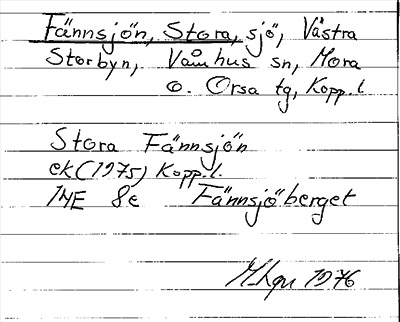 Fännsjön, Stora, sjö, Västra
Storbyn, Våmhus sn, Mora
o. Orsa tg, Kopp. l.
Stora Fännsjön
ek (1975) Kopp. l.
14E 8e Fännsjöberget
1976